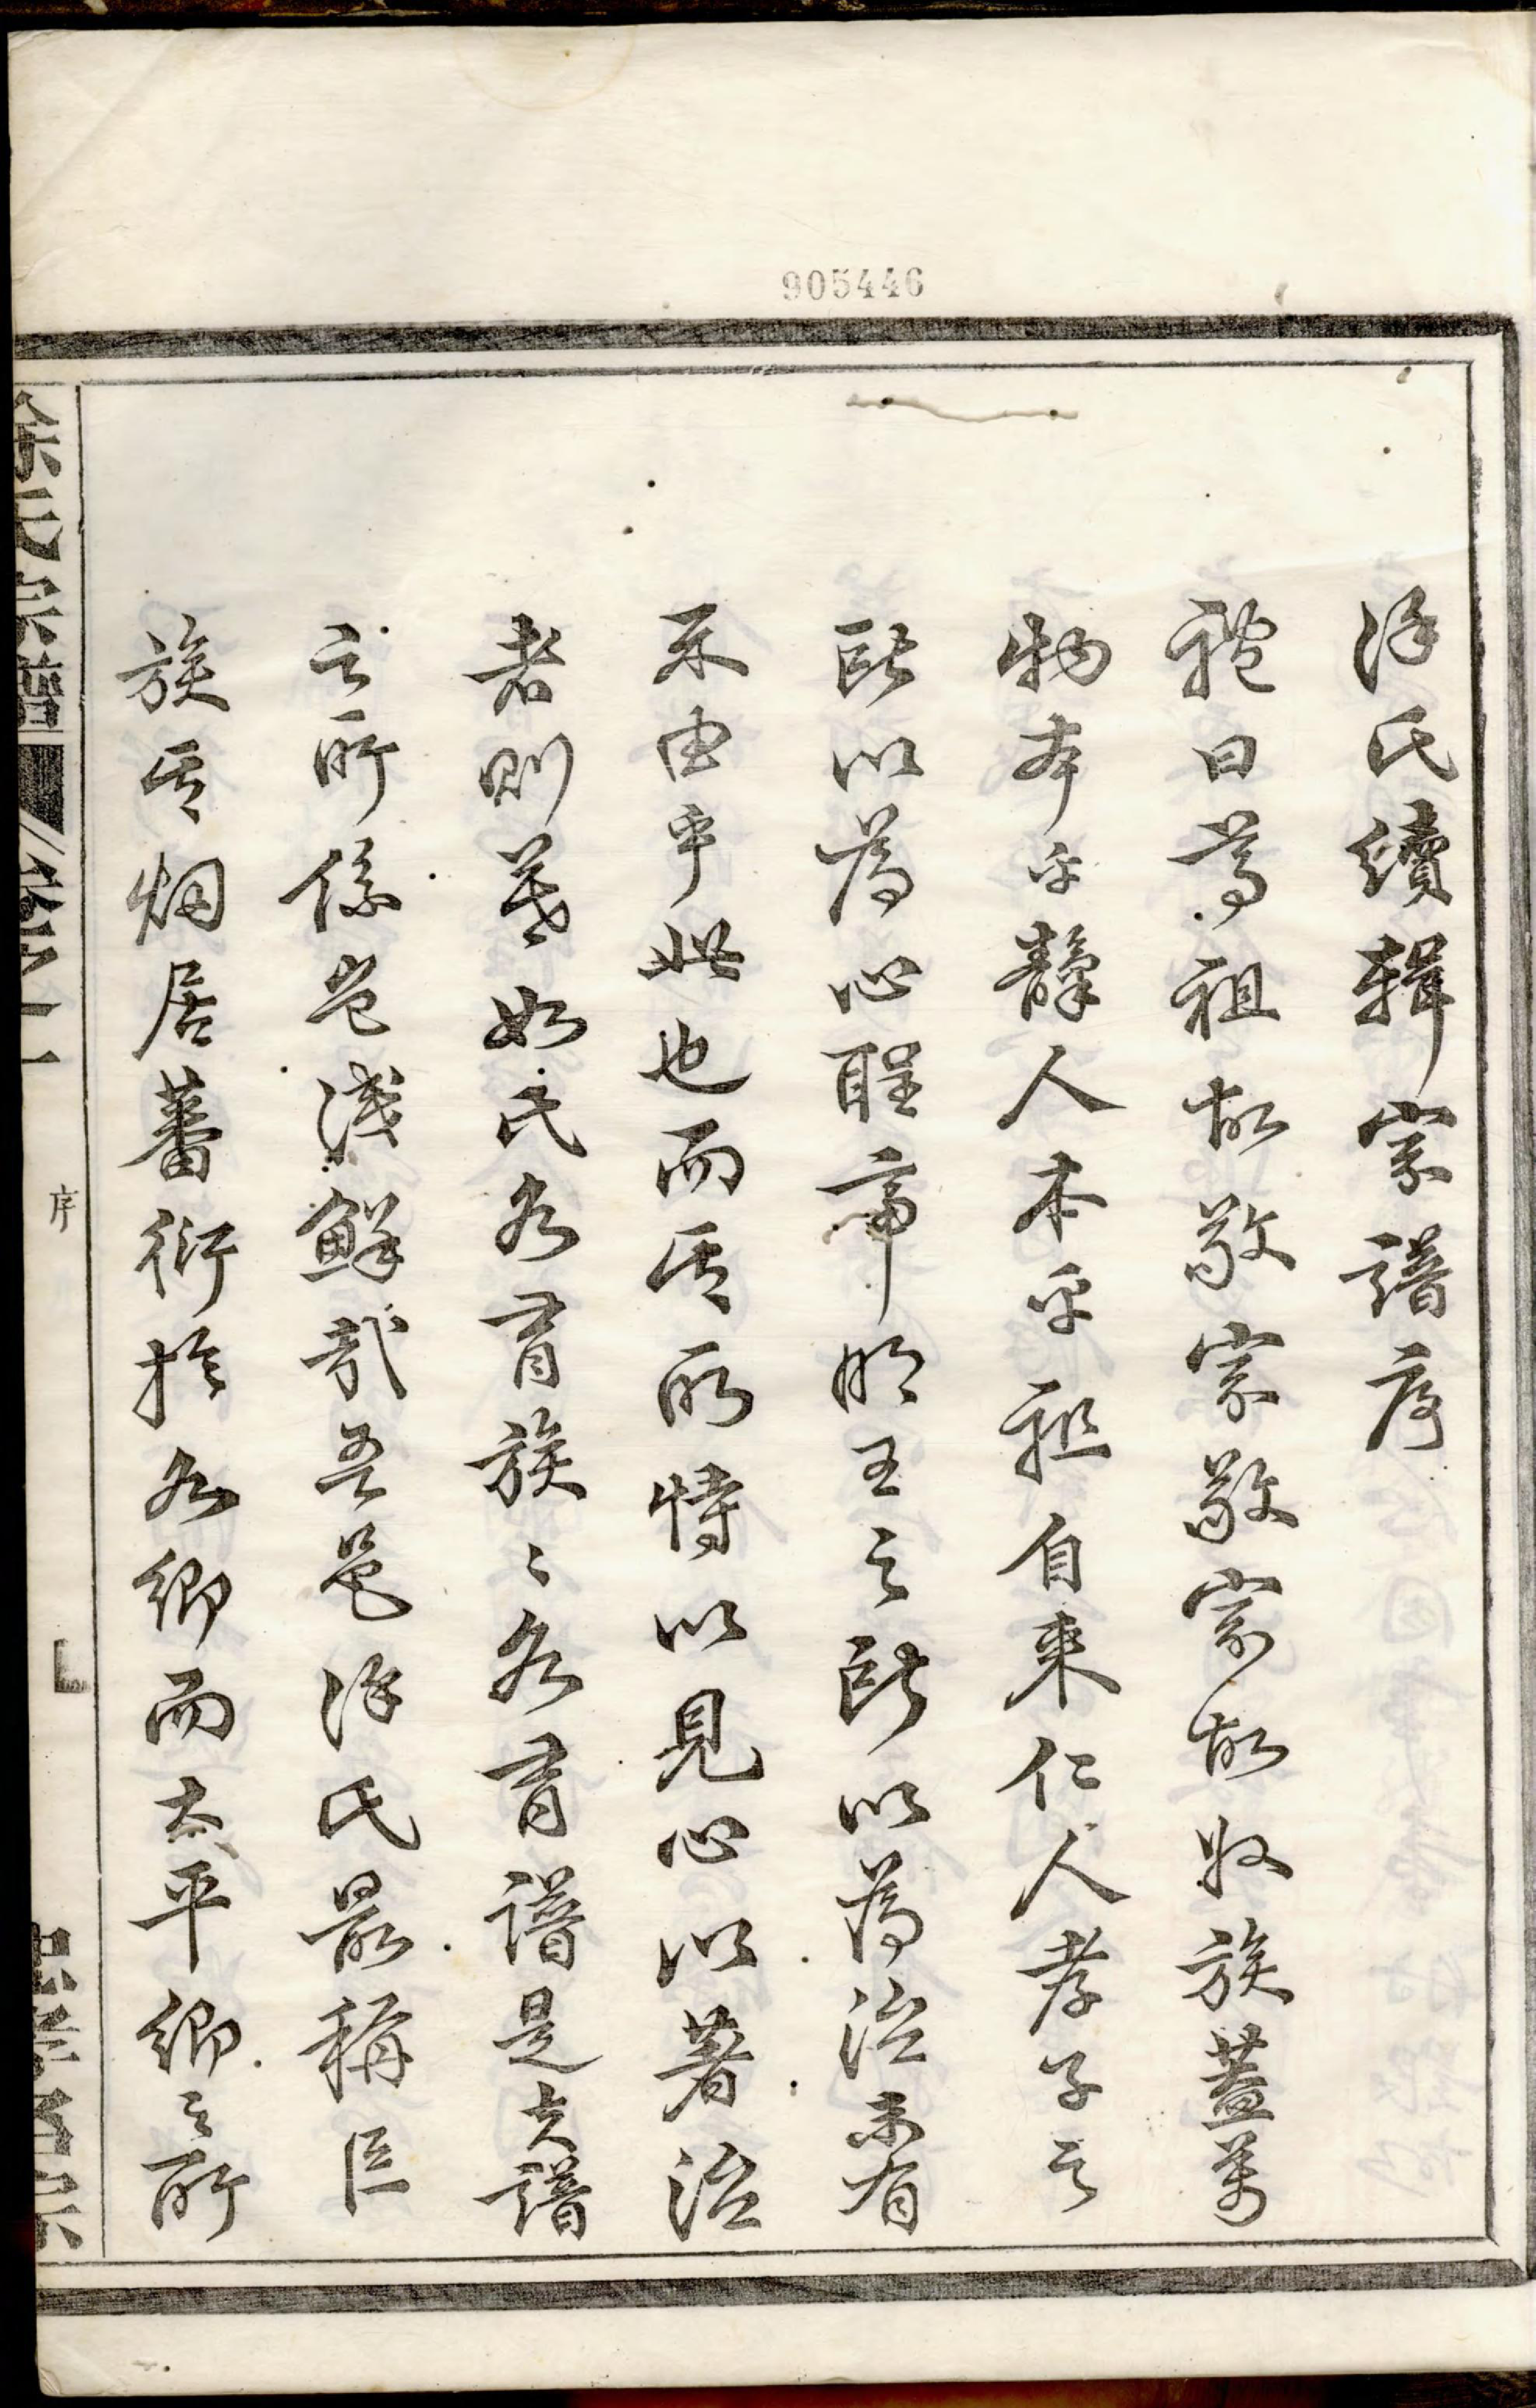 905446
徐氏續輯宗譜序
禮曰尊祖故敬宗敬宗故收族蓋萬
物本乎人本乎祖自來仁人孝子之
所以為心聖帝明王之所以為治未有
不由乎此也而其所恃以見心以著治
者則莫如氏各有族〻各有譜是夫譜
之所係豈淺鮮哉吾邑徐氏最稱巨
族其烟居蕃衍於各鄉而太平鄉之所
徐氏宗譜 序